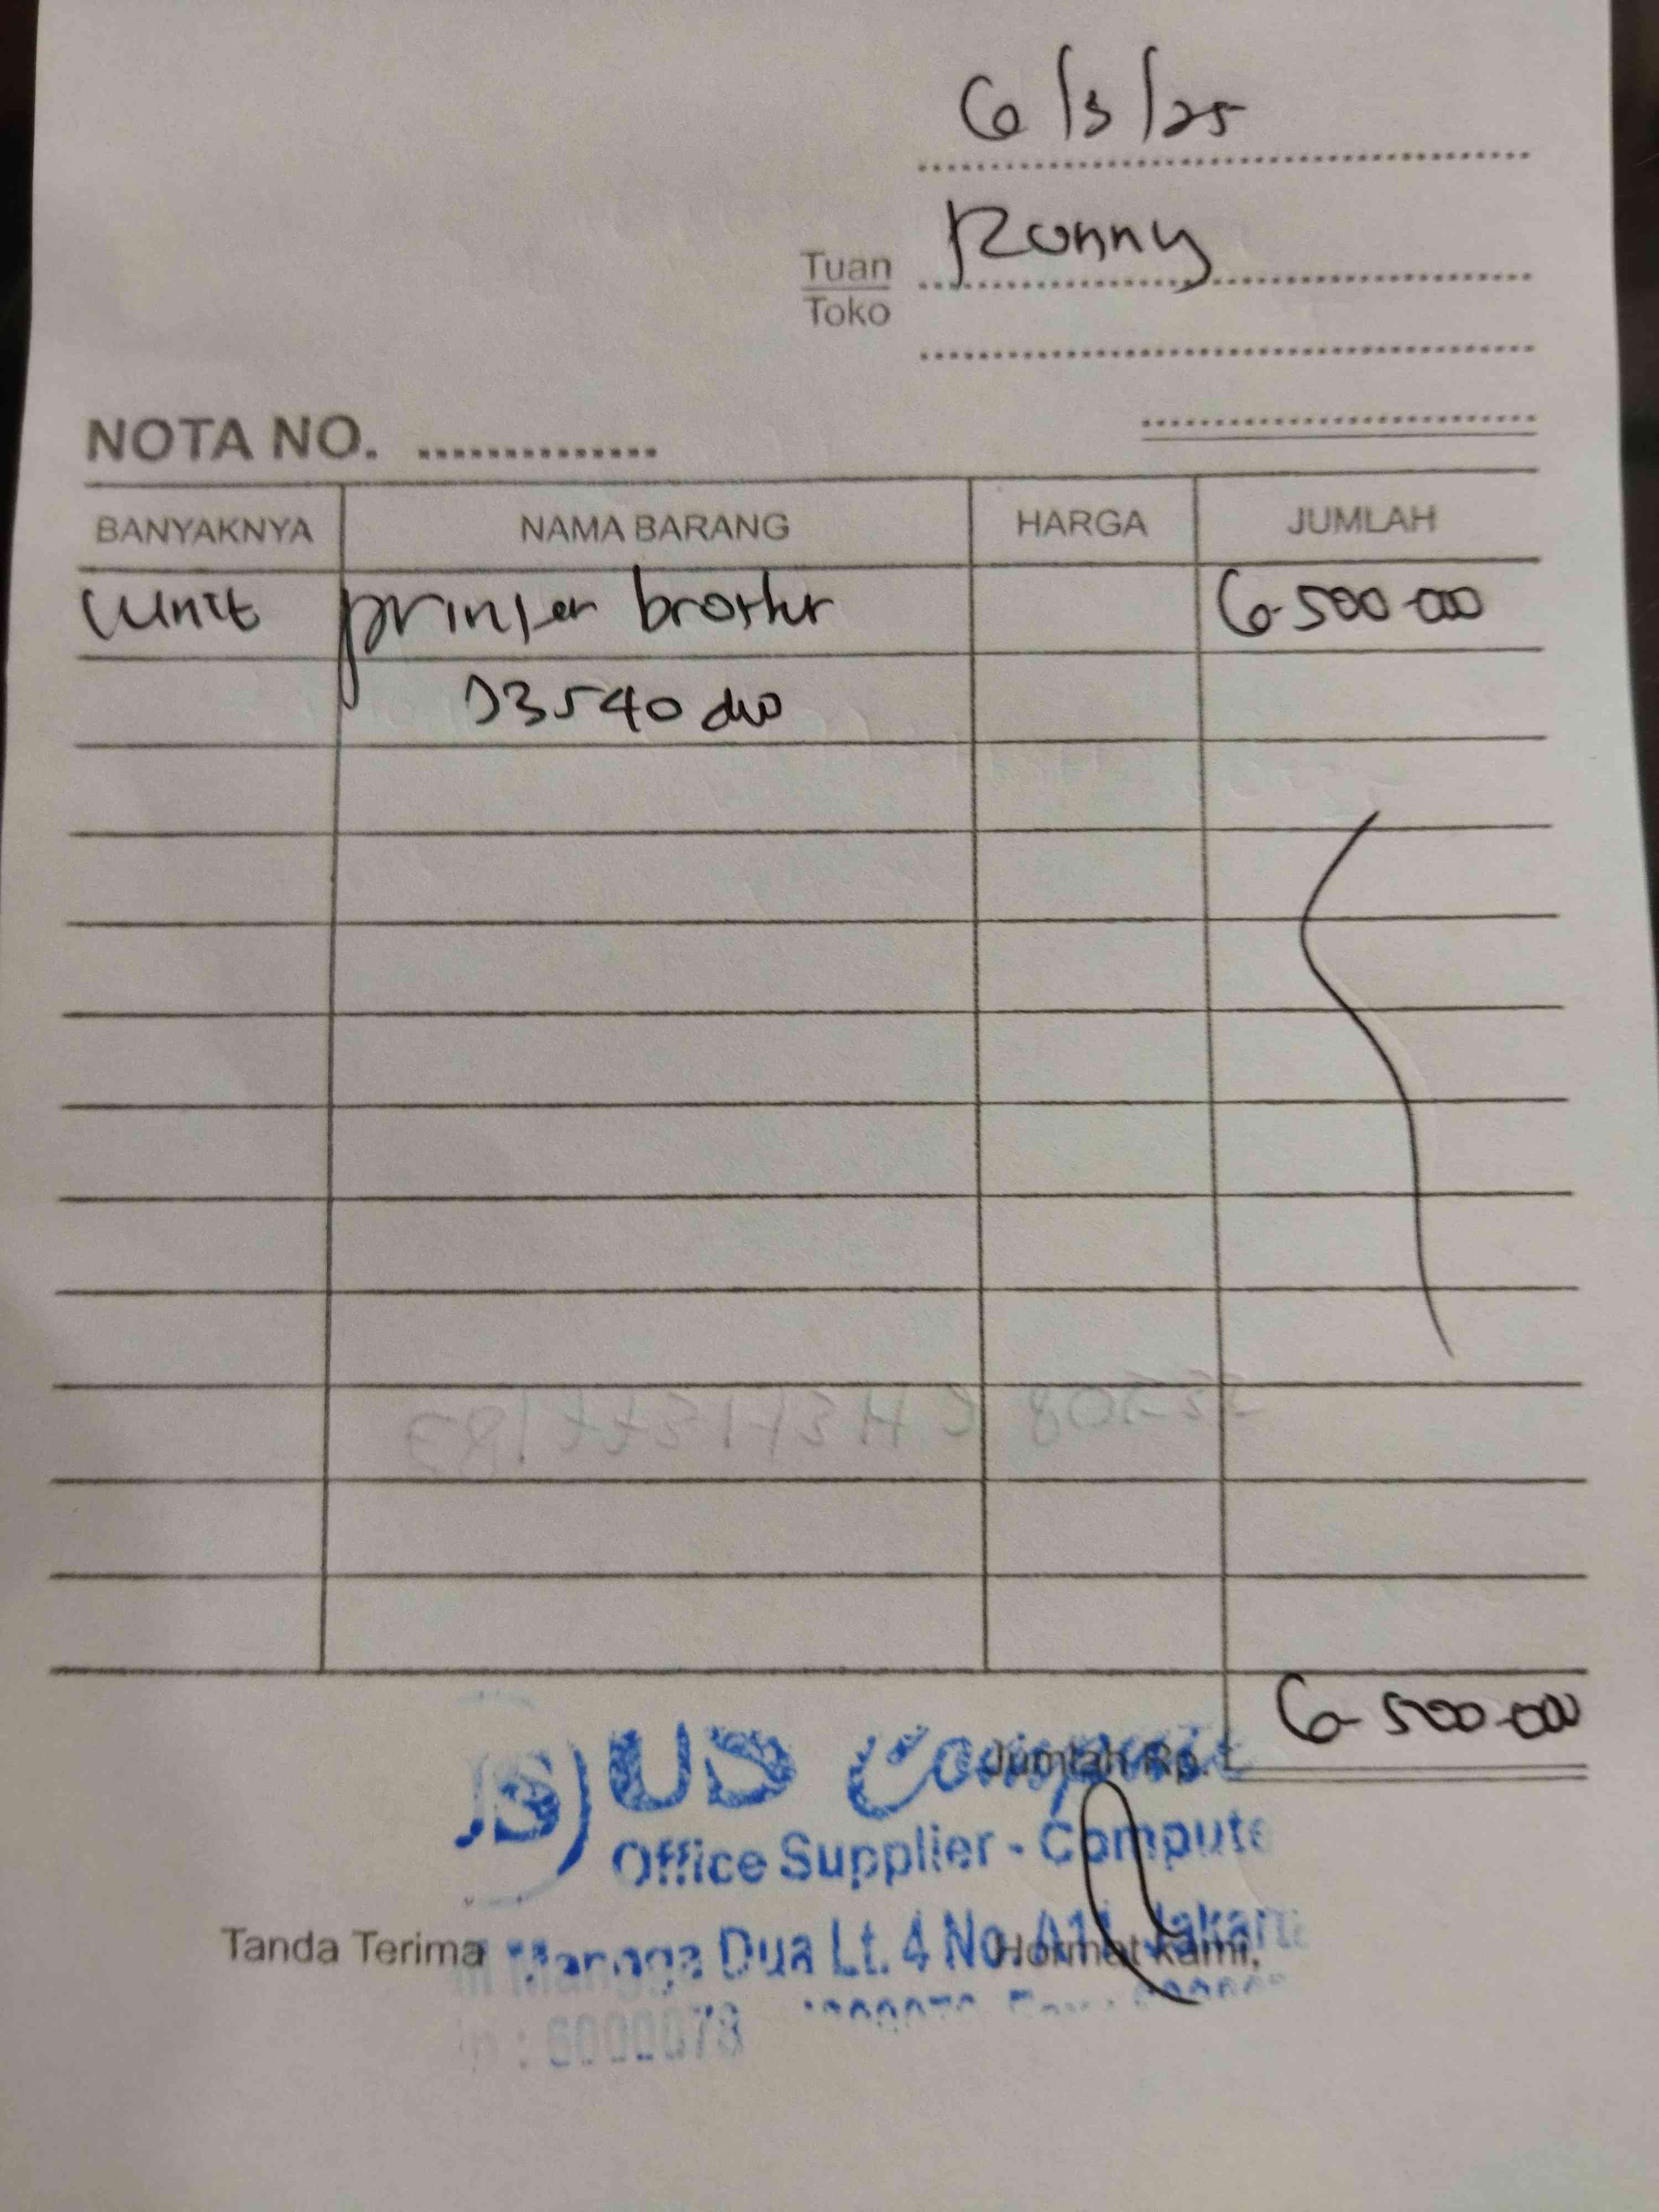 6/3/25
Tuan Ronny
Toko
NOTA NO. ..............
BANYAKNYA NAMA BARANG HARGA JUMLAH
1 unit printer brother 6.500.000
J3540 dw
Jumlah Rp. 6.500.000
US Compute
Office Supplier - Compute
Mangga Dua Lt. 4 No. A11, Jakarta
Tanda Terima Hormat kami,
: 6000078